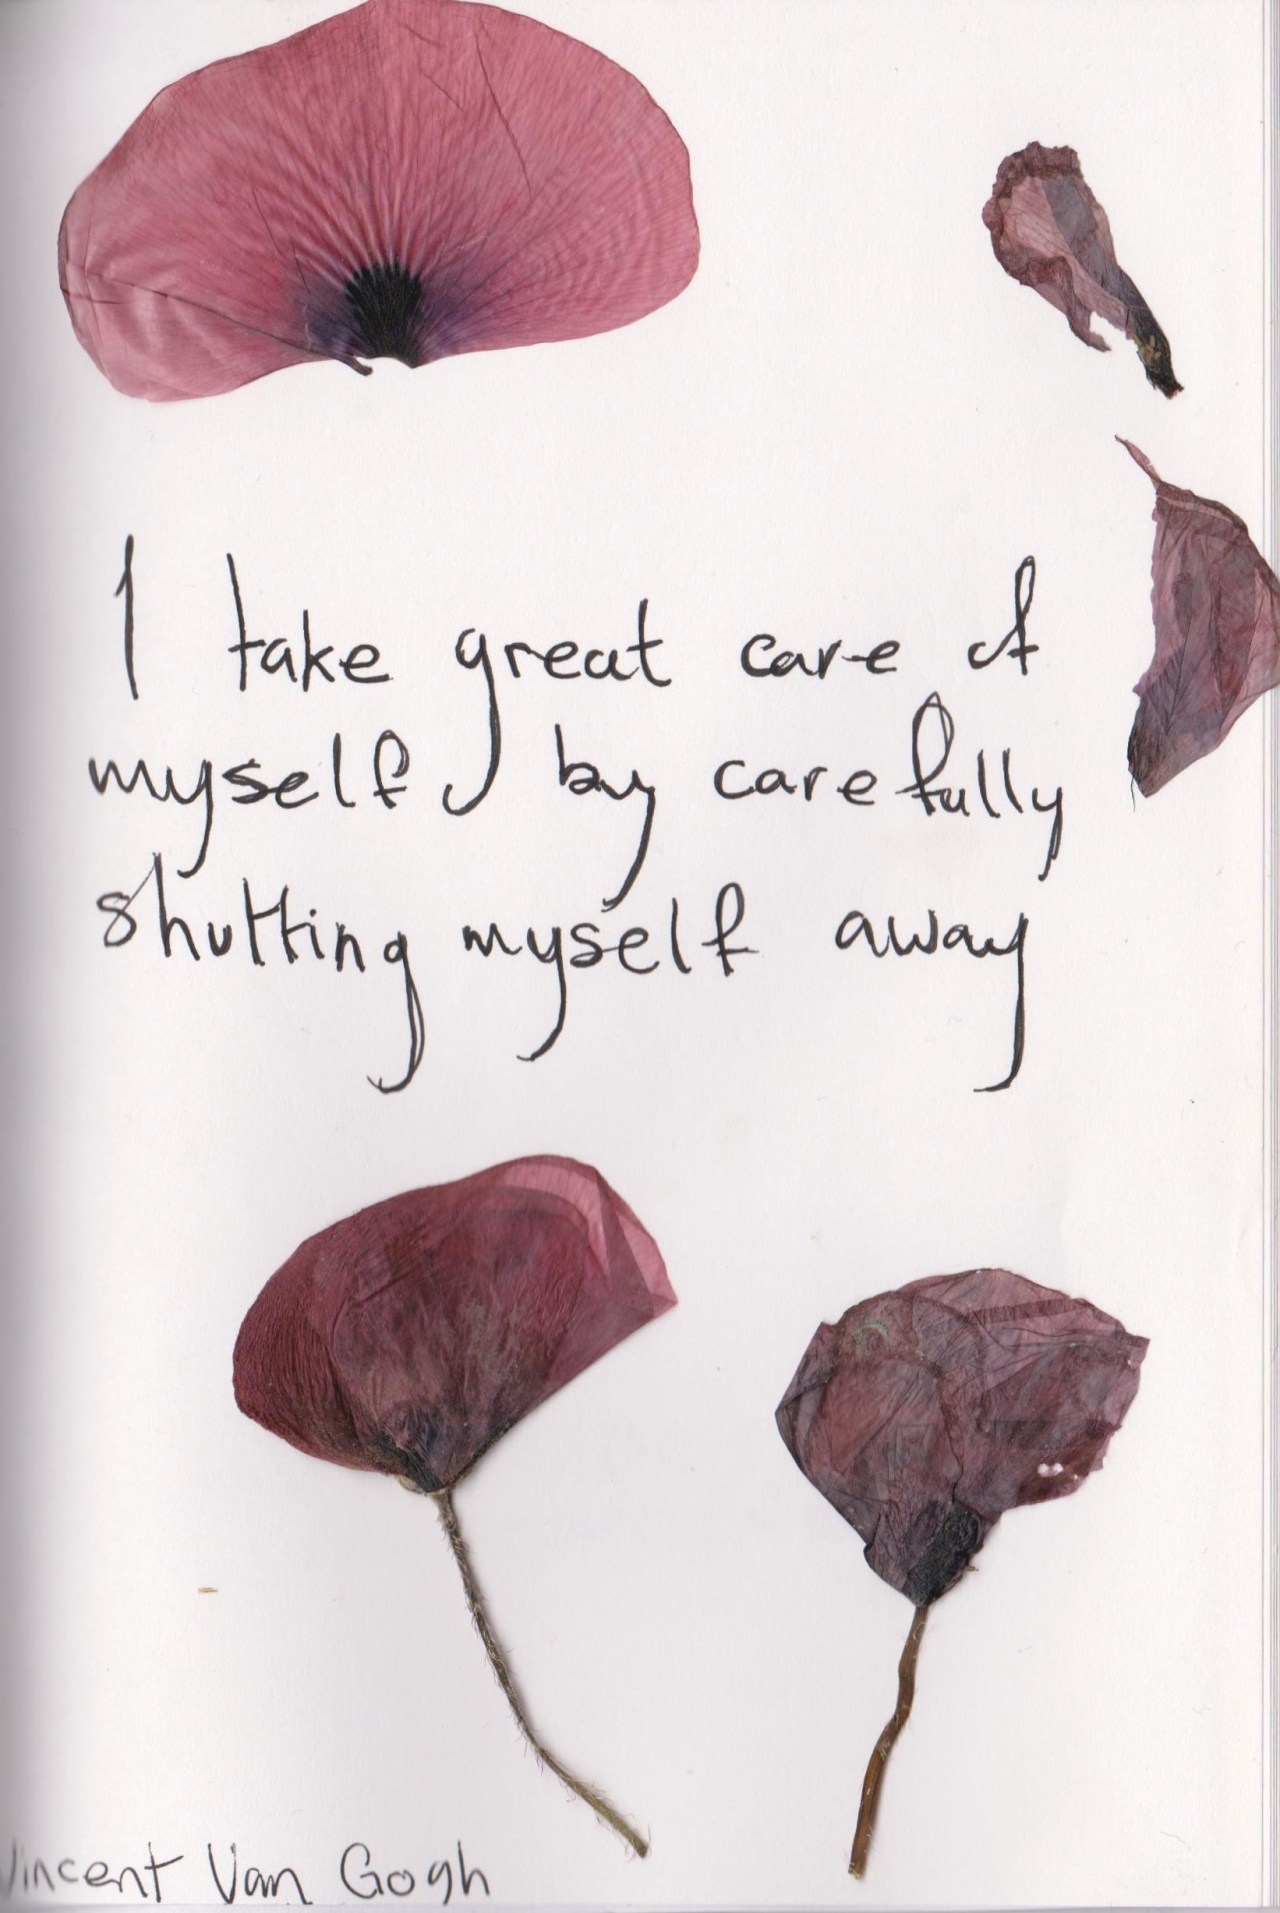 I take great care of
myself by carefully
shutting myself away
Vincent Van Gogh